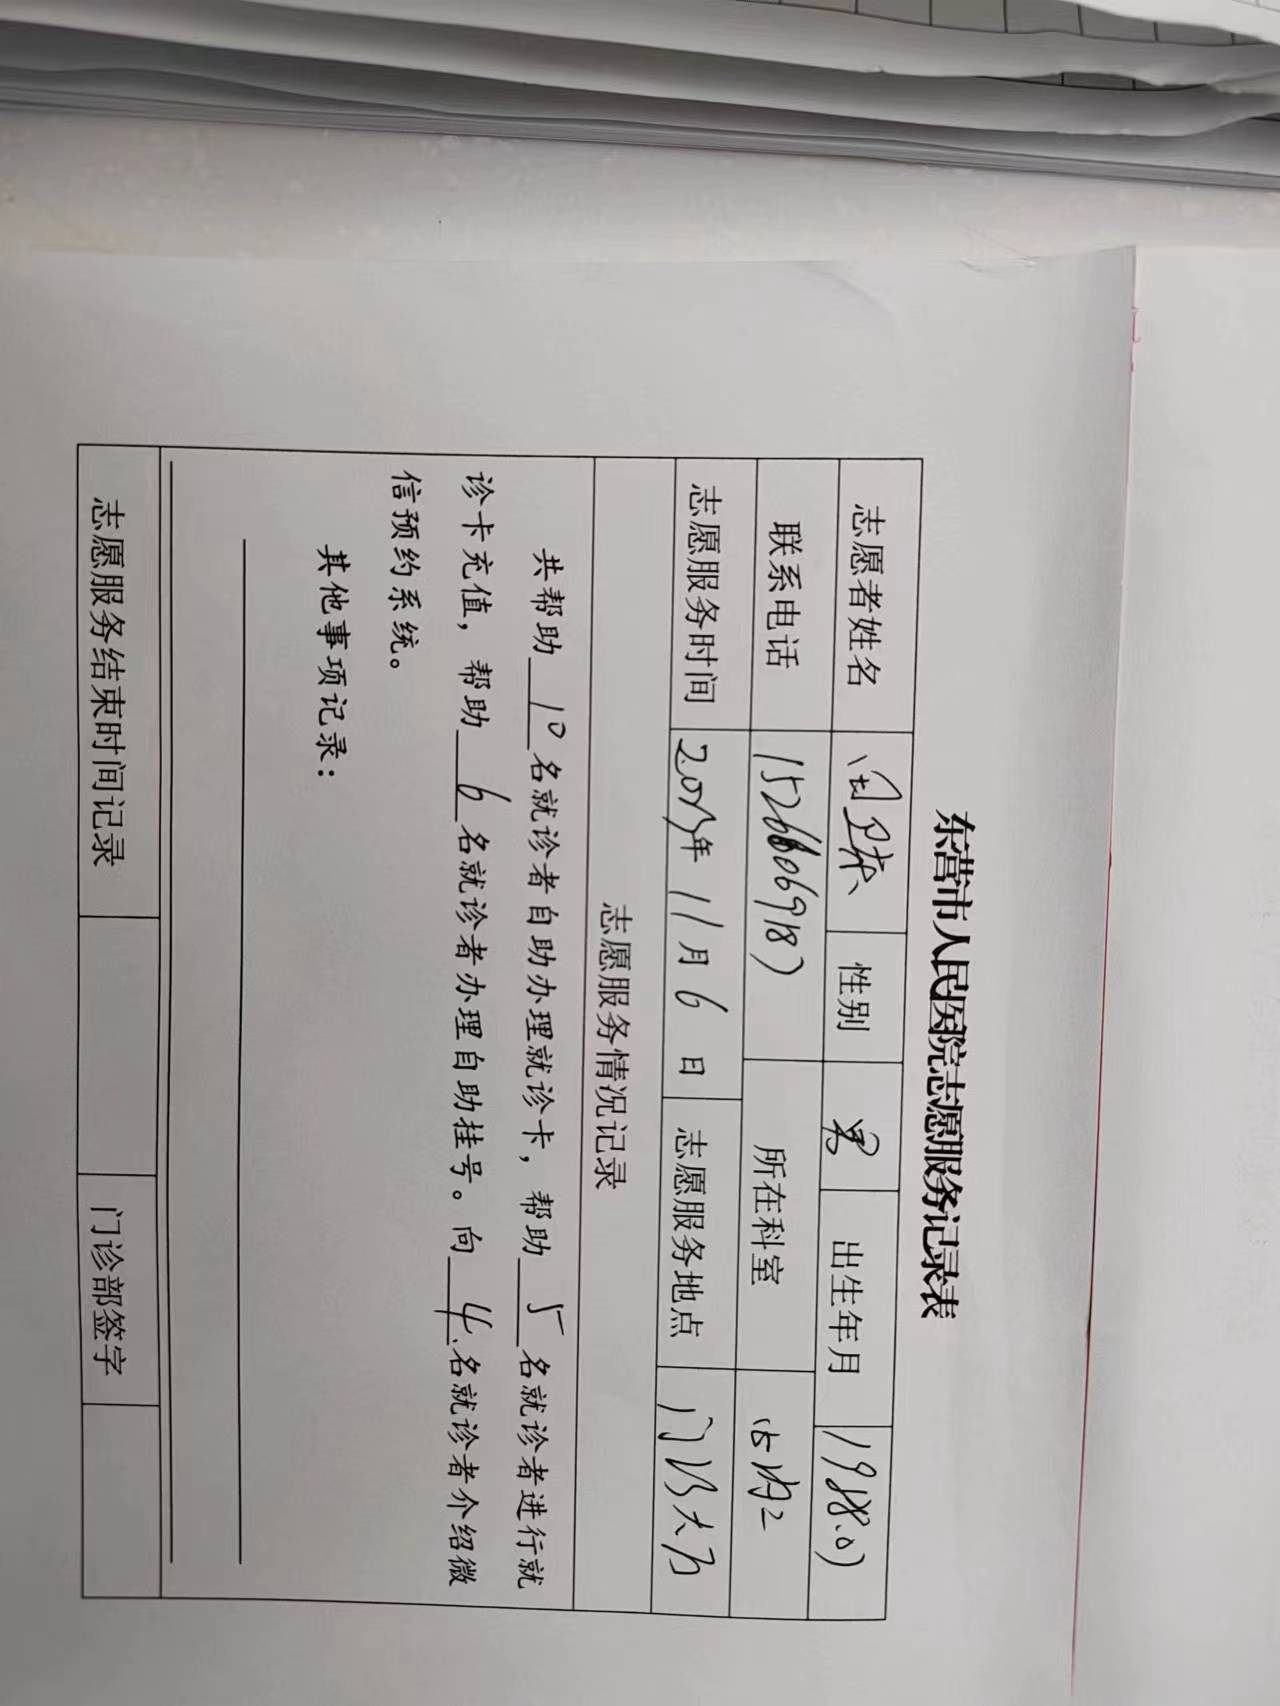 东营市人民医院志愿服务记录表
志愿者姓名 性别 男 出生年月
联系电话 所在科室
志愿服务时间 年 11月 6 日 志愿服务地点 门诊大厅
志愿服务情况记录
共帮助 10 名就诊者自助办理就诊卡，帮助 5 名就诊者进行就
诊卡充值，帮助 6 名就诊者办理自助挂号。向 4 名就诊者介绍微
信预约系统。
其他事项记录：
志愿服务结束时间记录 门诊部签字